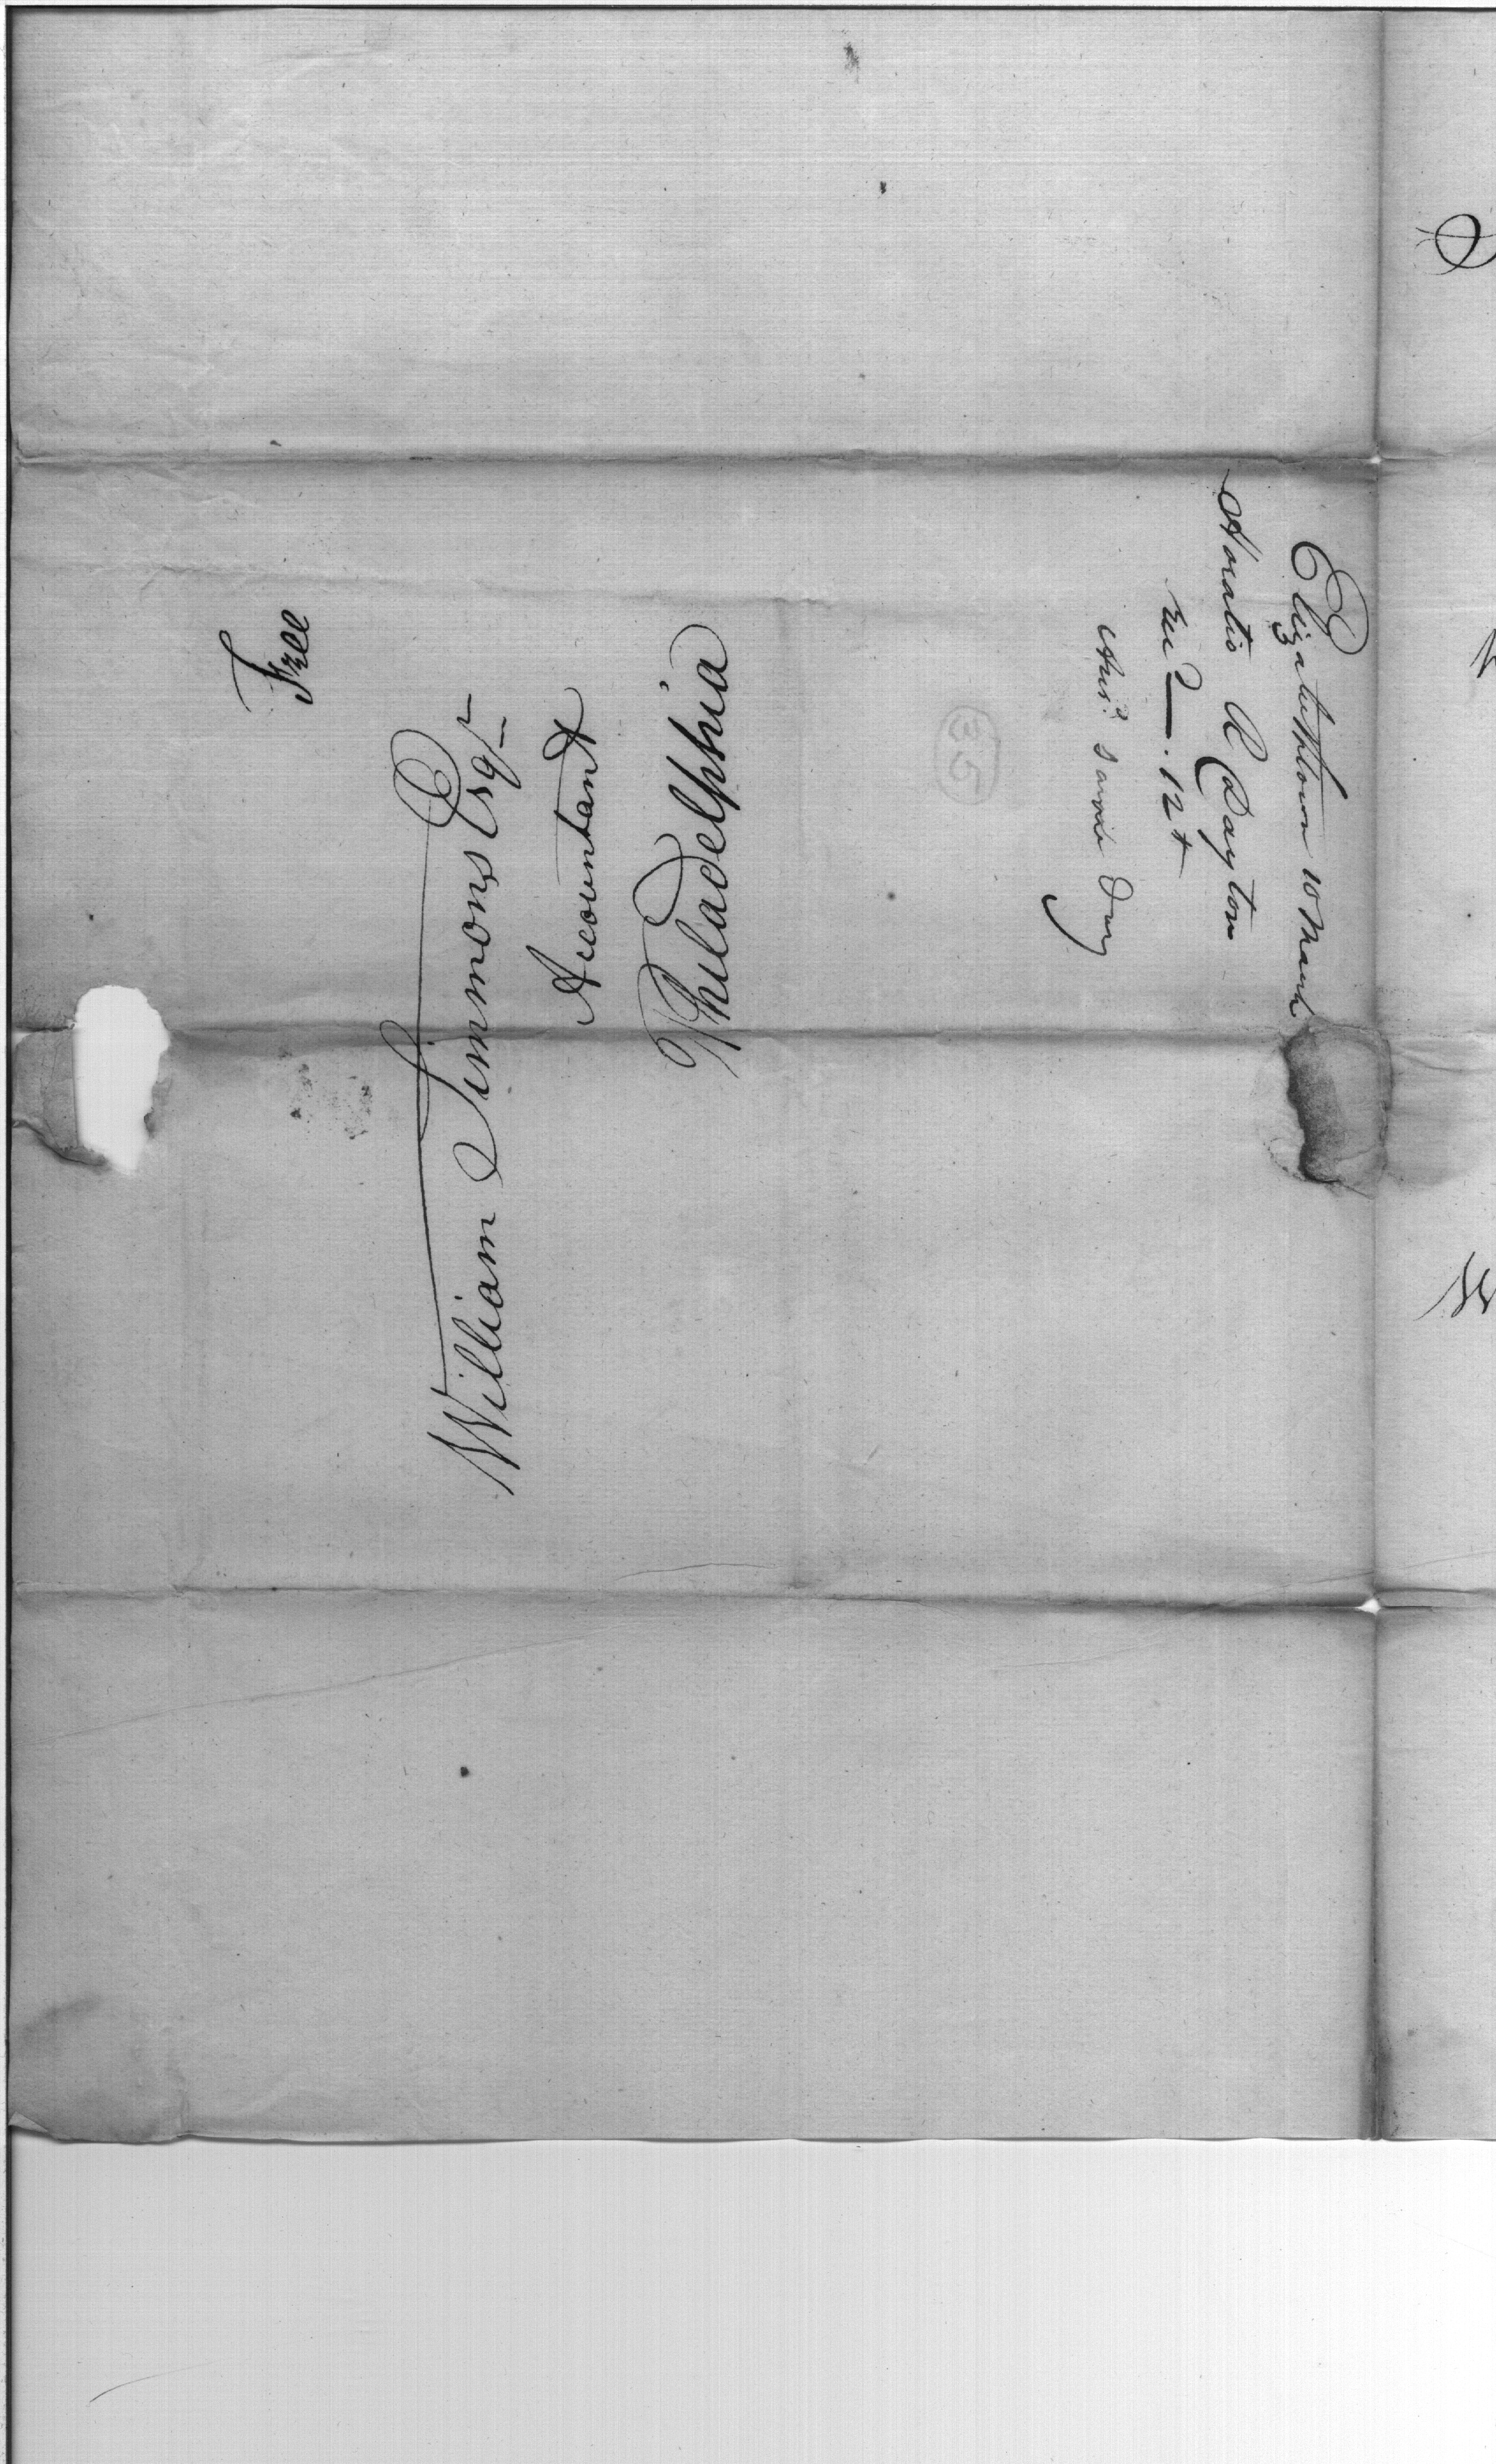 Free
William Simmons Esqr
Accountant
Philadelphia
Elizabethtown 10 March
Horatio R Dayton
Recd — . 12th
Ansd same Day